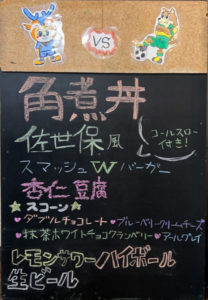 VS
角煮丼
佐世保風
コールスロー
付き!
スマッシュWバーガー
杏仁豆腐
★スコーン★
♥ダブルチョコレート ♥ブルーベリークリームチーズ
♥抹茶ホワイトチョコクランベリー ♥アールグレイ
レモンサワー ハイボール
生ビール